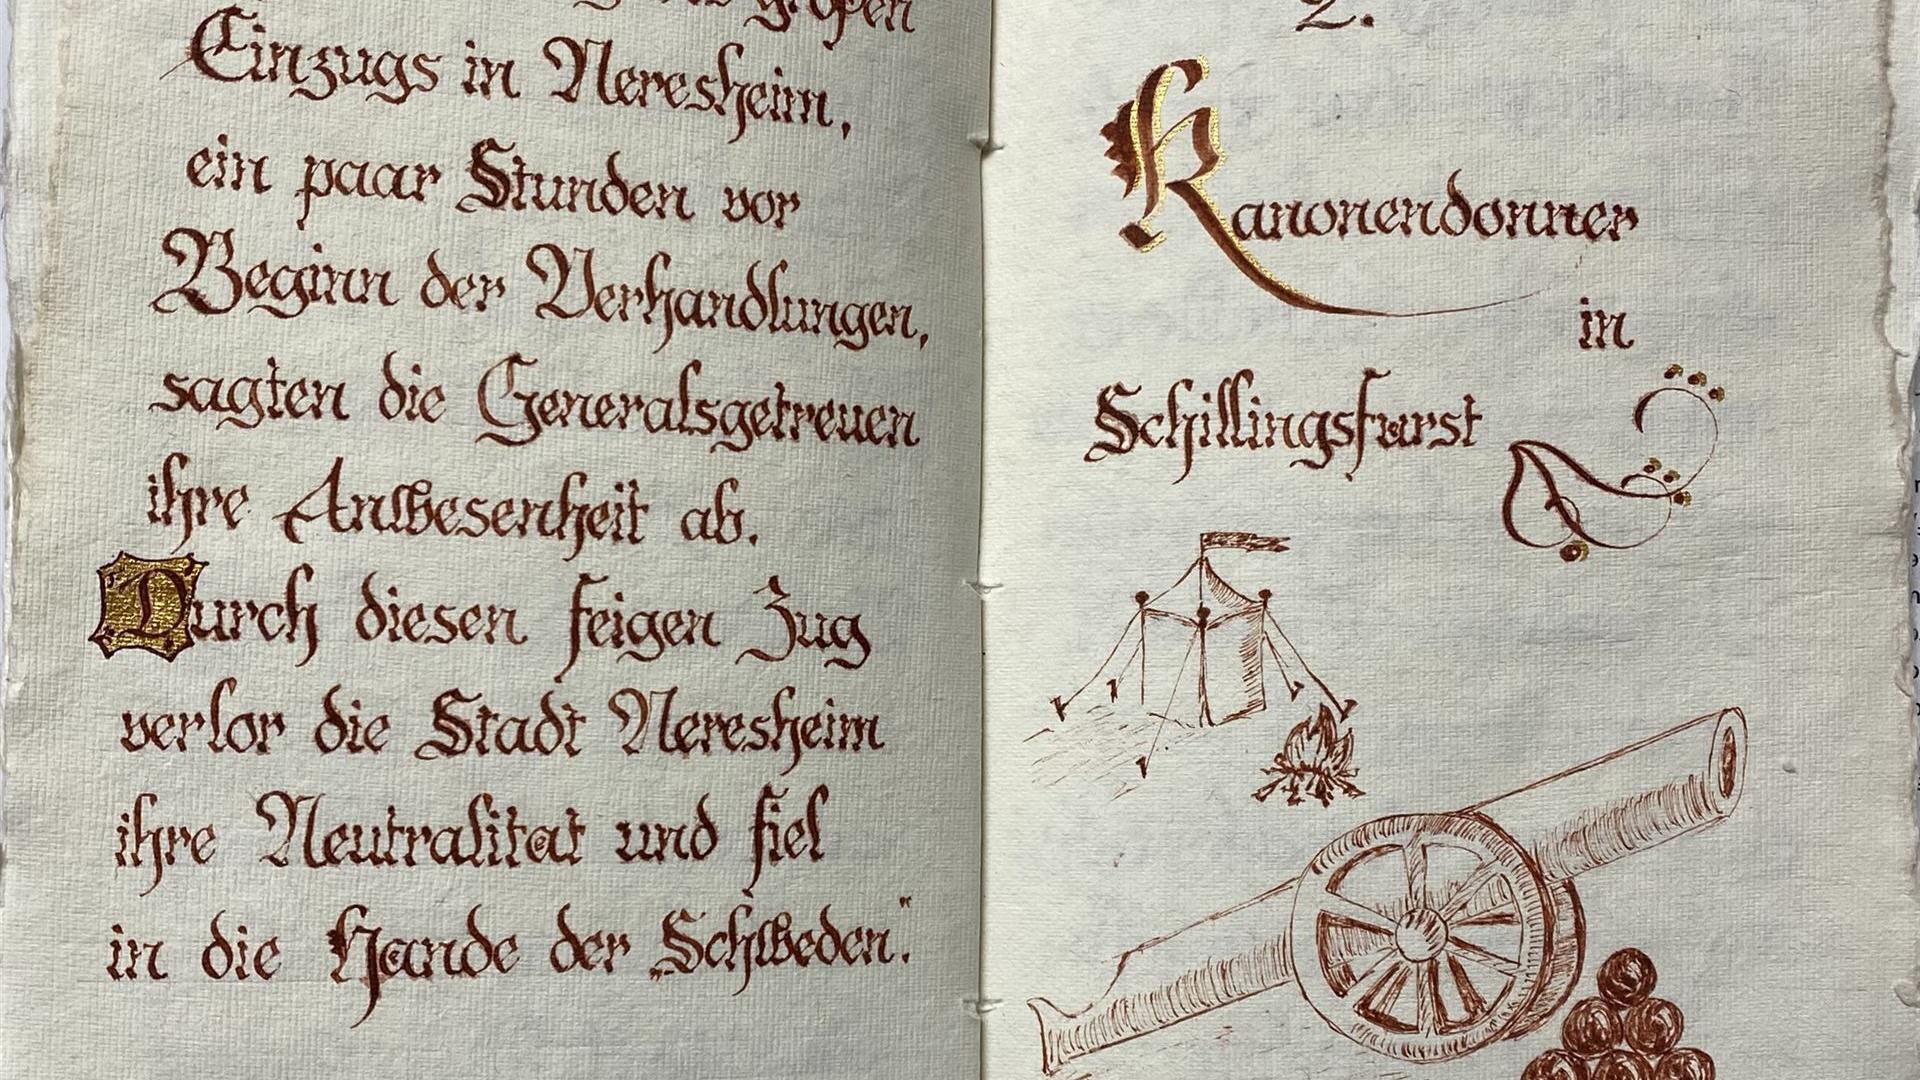 großen
Einzugs in Neresheim,
ein paar Stunden vor
Beginn der Verhandlungen,
sagten die Generalsgetreuen
ihre Anwesenheit ab.
Durch diesen feigen Zug
verlor die Stadt Neresheim
ihre Neutralität und fiel
in die Hände der Schweden."
2.
Kanonendonner
in
Schillingsfürst